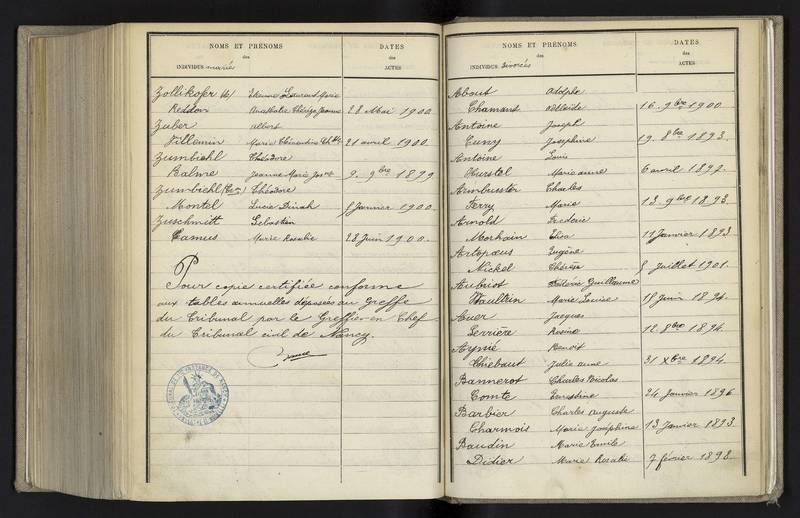 NOMS ET PRÉNOMS
des
INDIVIDUS mariés
DATES
des
ACTES
Zollikofer
Reddon 28 Mai 1900
Zuber Albert
Villemin Marie Clémentine 21 avril 1900.
Zumbiehl Théodore
Balme Jeanne Marie 9bre 1899
Zumbiehl Théodore
Montel Lucie Dinah Janvier 1900
Zuschmitt Sébastien
Camus Marie Rosalie 28 Juin 1900.
Pour copie certifiée conforme
aux tables annuelles déposées au Greffe
du Tribunal par le Greffier en Chef
du Tribunal civil de Nancy.
NOMS ET PRÉNOMS
des
INDIVIDUS divorcés
DATES
des
ACTES
About Adolphe
Chamant Adélaïde 16. 9bre 1900
Antoine Joseph
Cuny Joséphine 19. 8bre 1893.
Antoine Louis
Hurstel Marie anne 6 avril
Armbruster Charles
Ferry Marie 13. 9bre 1893.
Arnold Frédéric
Morhain Elisa 11 Janvier 1893
Artopœus Eugène
Nickel Thérèse juillet 1901.
Aubriot Guillaume
Waultrin Marie Louise Juin 1894.
Auer Jacques
Serrière Rosine 12 8bre 1894.
Aynié Benoit
Thiébaut Julie anne 31 Xbre 1894
Bannerot Charles Nicolas
Comte Ernestine 24 Janvier 1896
Barbier Charles Auguste
Charmois Marie Joséphine 13 Janvier 1893.
Baudin Marie Emile
Didier Marie Rosalie 7 février 1898